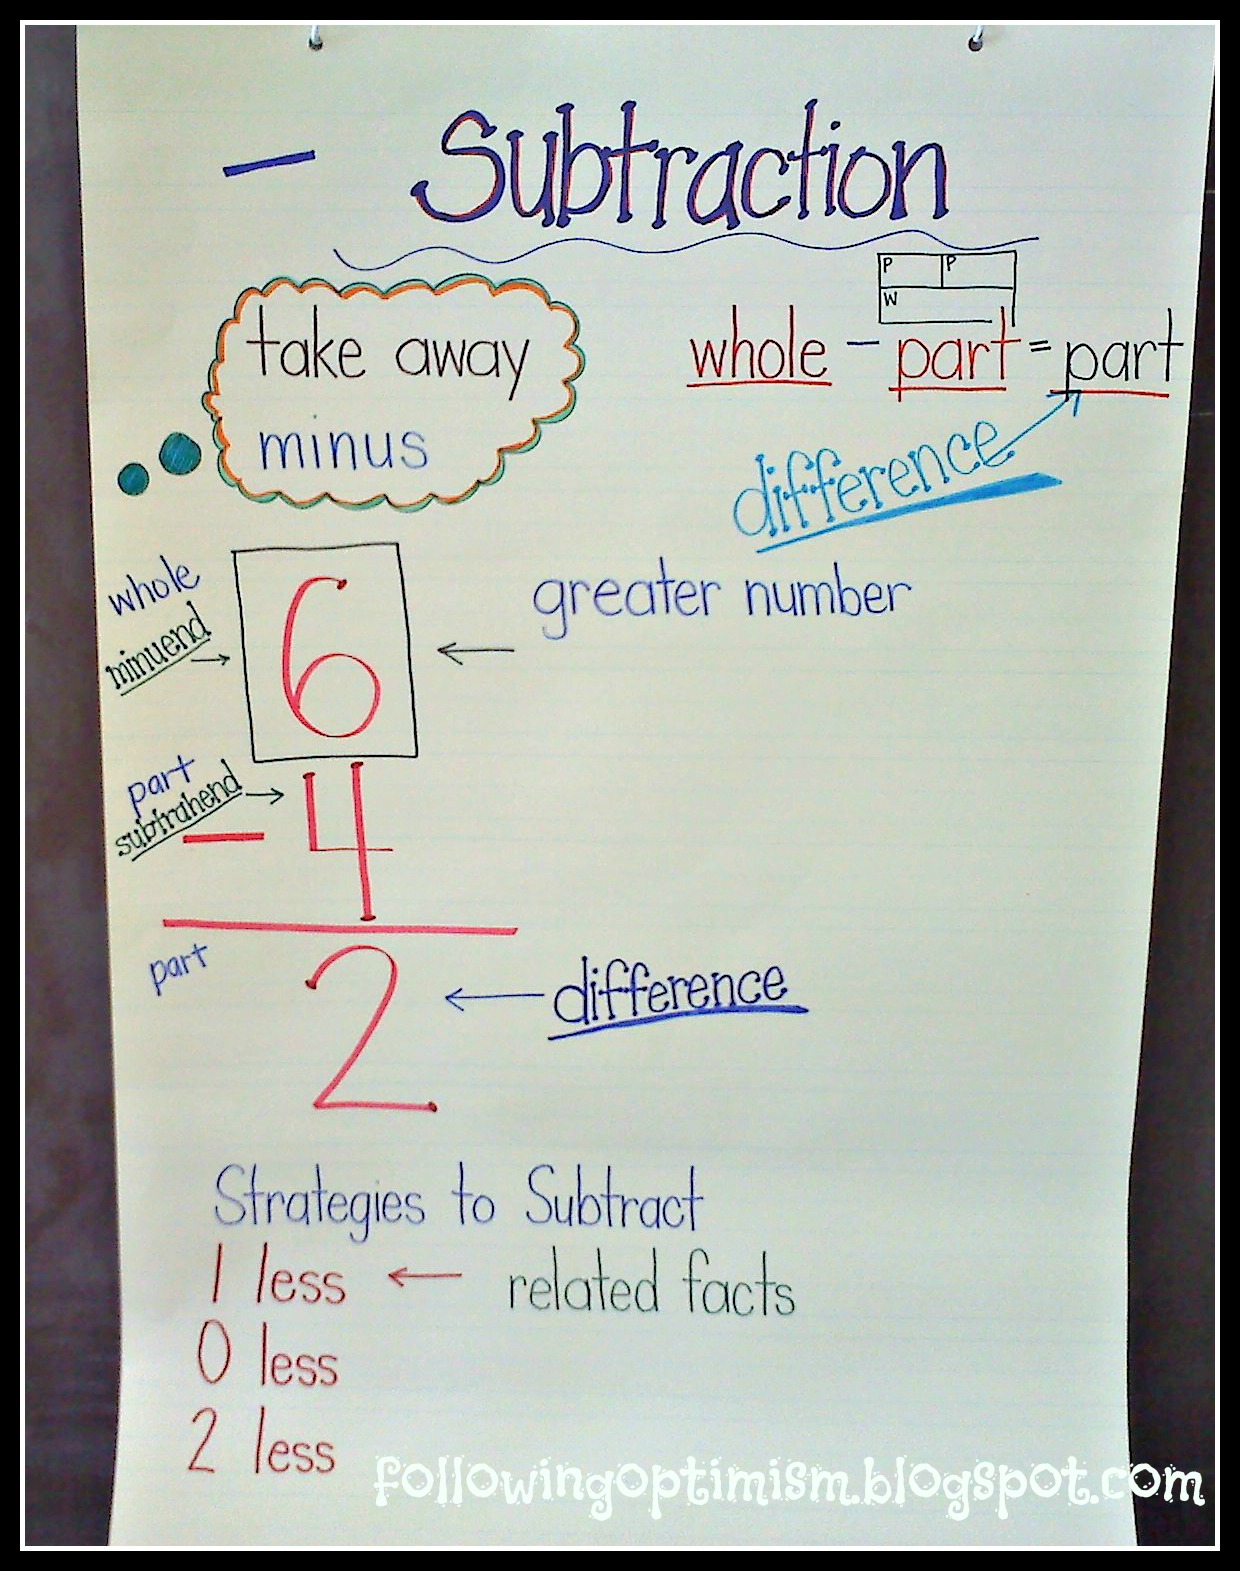 − Subtraction
P P
W
take away
minus
whole − part = part
difference
whole
minuend
6
greater number
part
subtrahend
− 4
part
2
difference
Strategies to Subtract
1 less ← related facts
0 less
2 less
followingoptimism.blogspot.com